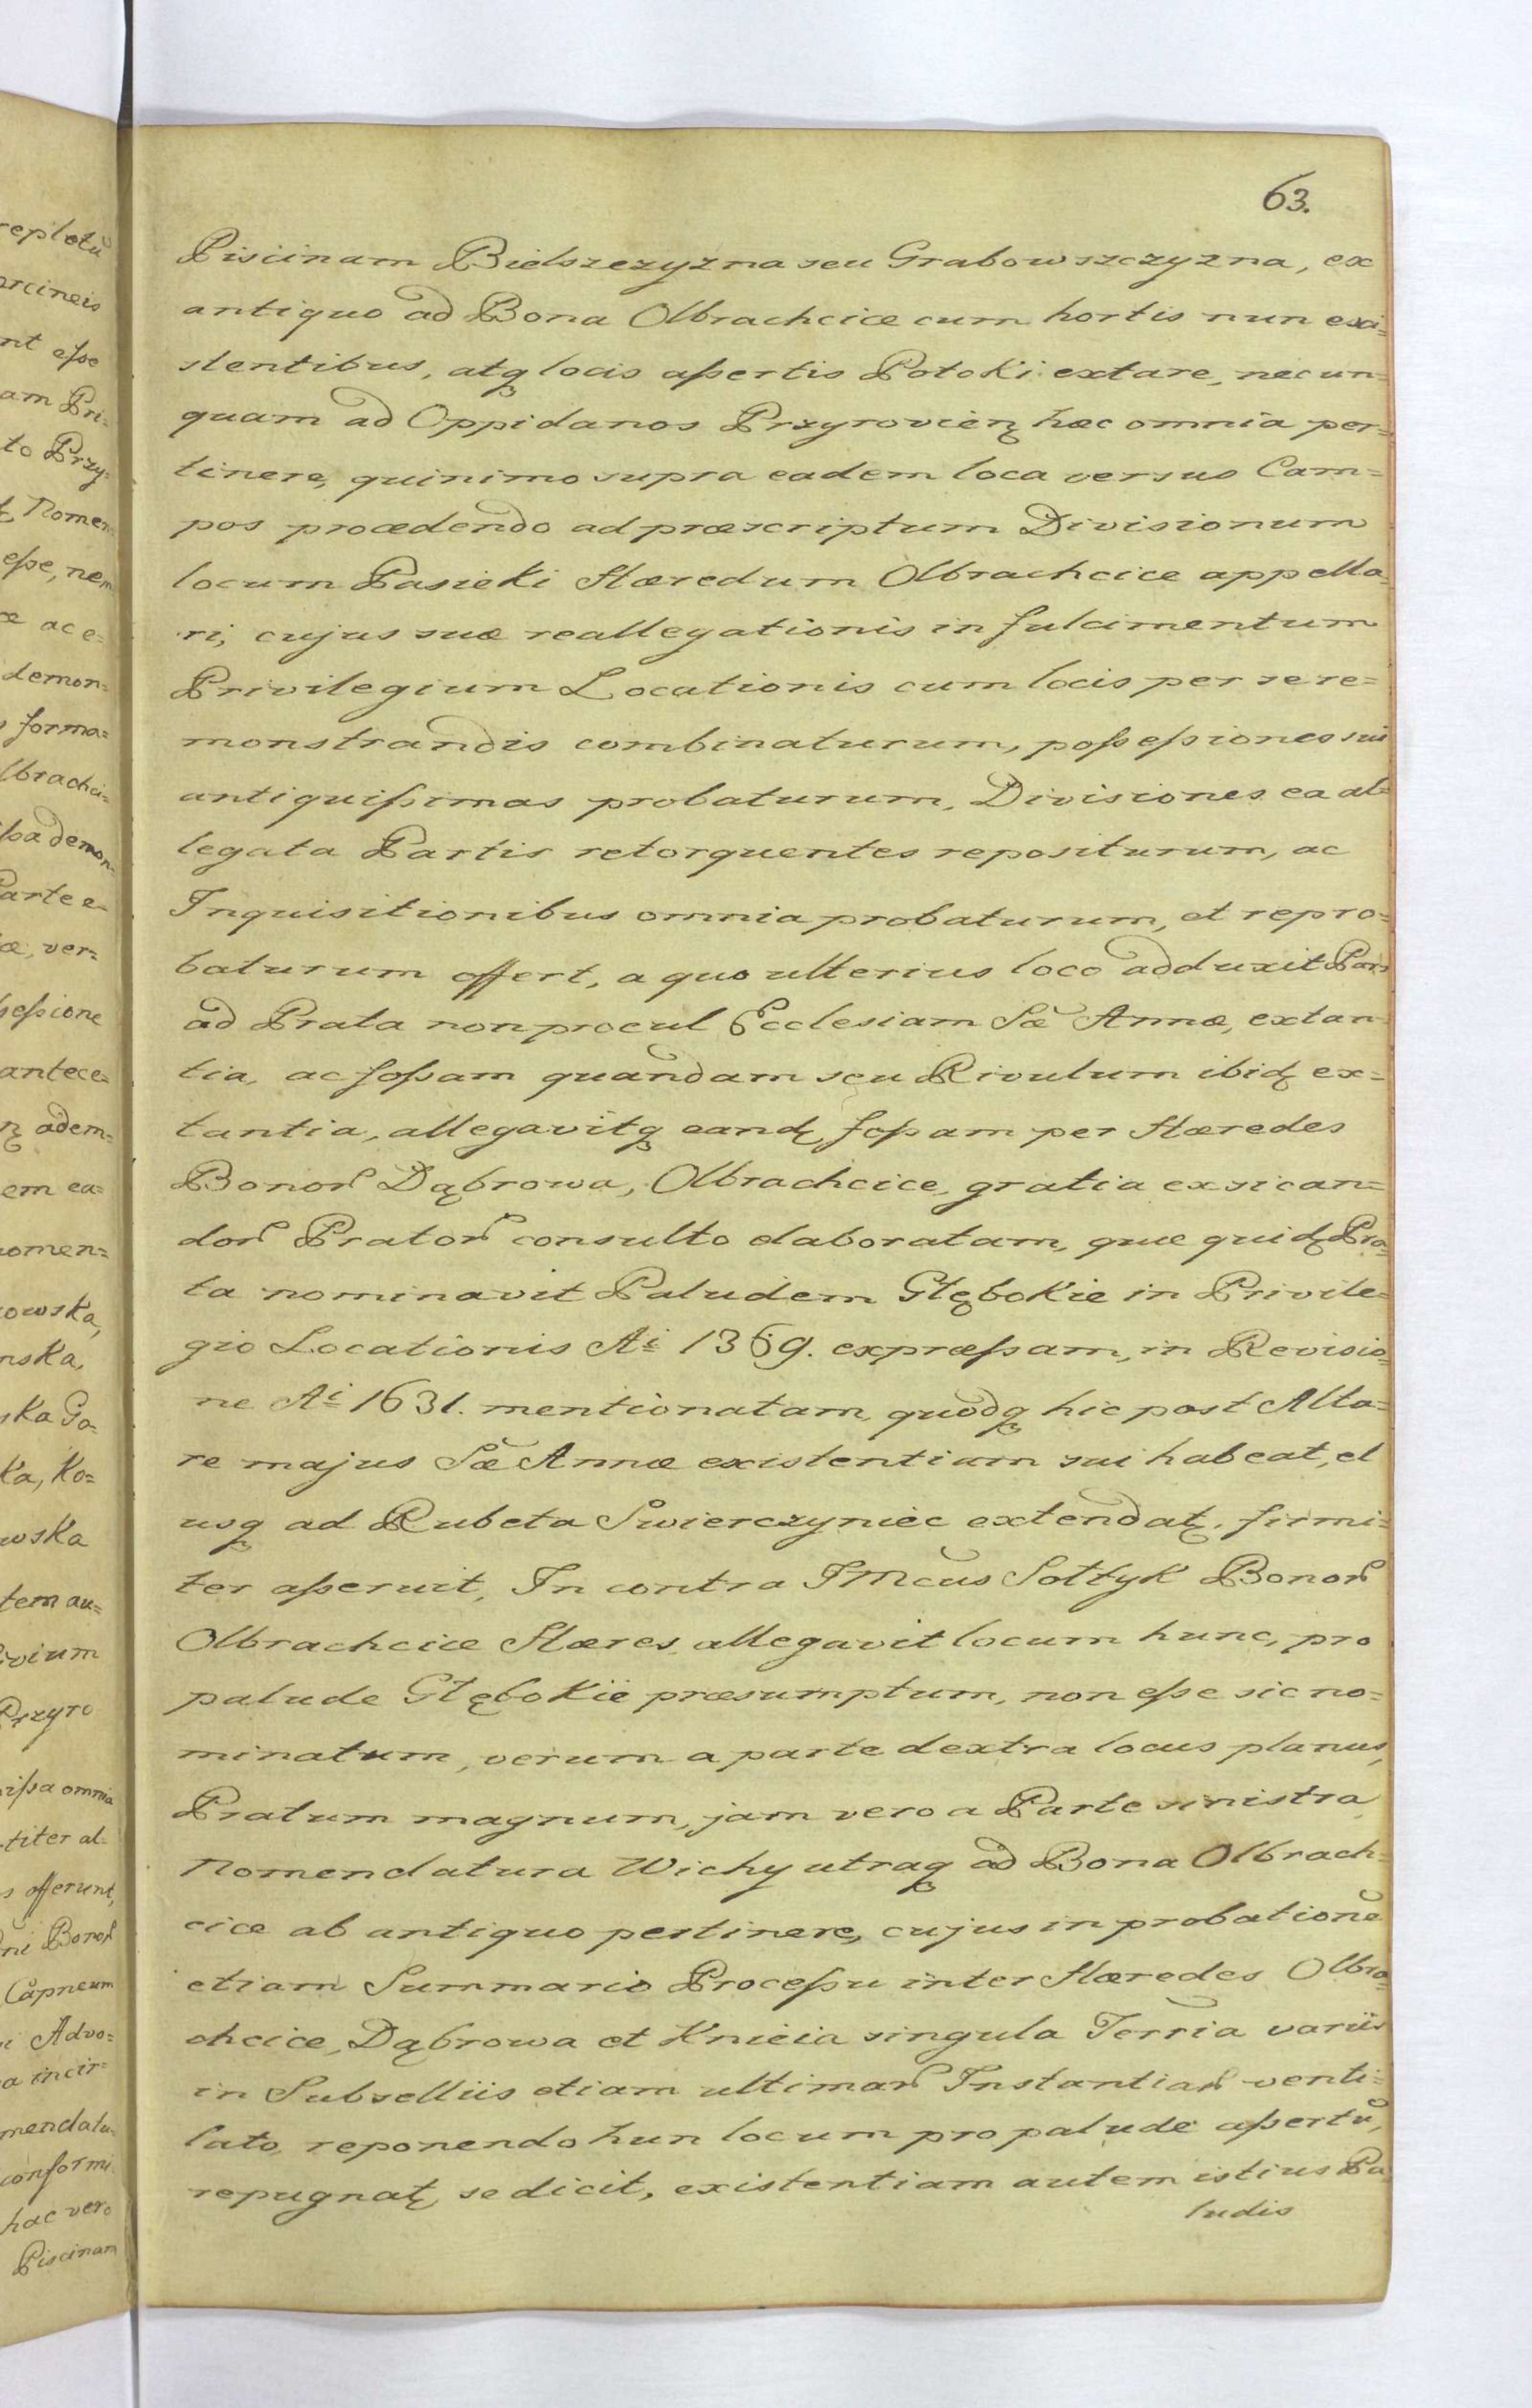 63.
Piscinam Bielszczyzna seu Grabowszczyzna, ex
antiquo ad Bona Olbrachcice cum hortis nun exi=
stentibus, atq locis aſsertis Potoki extare, nec un=
quam ad Oppidanos Przyrovien hæc omnia per=
tinere, quinimo supra eadem loca versus Cam=
pos procedendo ad præscriptum Divisionum
locum Pasieki Hæredum Olbrachcice appella=
ri, cujus suæ reallegationis in fulcimentum
Privilegium Locationis cum locis per se re=
monstrandis combinaturum, poſseſsiones sui
antiquiſsimas probaturum, Divisiones ea al=
legata Partis retorquentes repositurum, ac
Inquisitionibus omnia probaturum, et repro=
baturum offert, a quo ulterius loco adduxit Pars
ad Prata non procul Ecclesiam Sæ Annæ, extan
tia, ac foſsam quandam seu Rivulum ibid ex=
tantia, allegavitq eand foſsam per Hæredes
Bonor Dąbrowa, Olbrachcice, gratia exsican=
dor Prator consulto elaboratam, quæ quid Pra=
ta nominavit Paludem Głębokie in Privile=
gio Locationis Ai 1369. expræſsam, in Revisio=
ne Ai 1631. mentionatam, quodq hic post Alta=
re majus Sæ Annæ existentiam sui habeat, et
usq ad Rubeta Swierczyniec extendat, firmi=
ter aſseruit, In contra IMcus Sołtyk Bonor
Olbrachcice Hæres allegavit locum hunc, pro
palude Głębokie præsumptum, non eſse sic no=
minatum, verum a parte dextra locus planus,
Pratum magnum, jam vero a Parte sinistra
Nomenclatura Wichy utraq ad Bona Olbrach=
cice ab antiquo pertinere, cujus in probatione
etiam Summario Proceſsu inter Hæredes Olbra=
chcice, Dąbrowa et Knieia singula Terria variis
in Subselliis etiam ultimar Instantiar venti=
lato, reponendo hun locum pro palude aſsertu,
repugnat se dicit, existentiam autem istius Pa
ludis